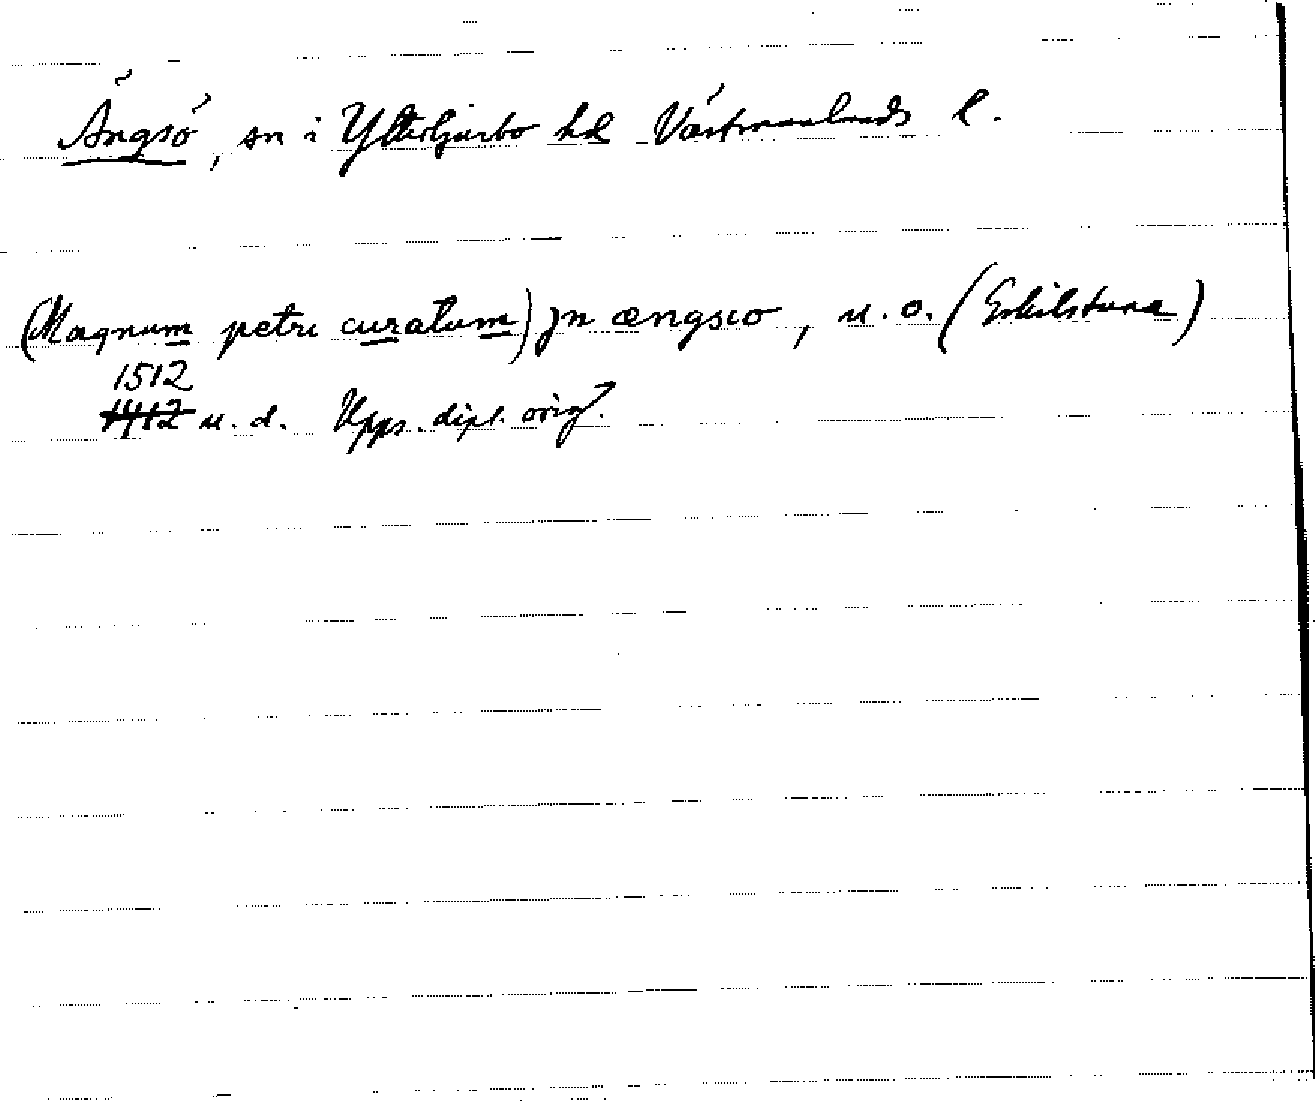 Ängsö, sn i Yttertjurbo hd Västmanlands l.
(Magnum petri curatum) jn ængsio, u. o. (Eskilstuna)
1512
1412 u. d. Upps. dipl. orig.